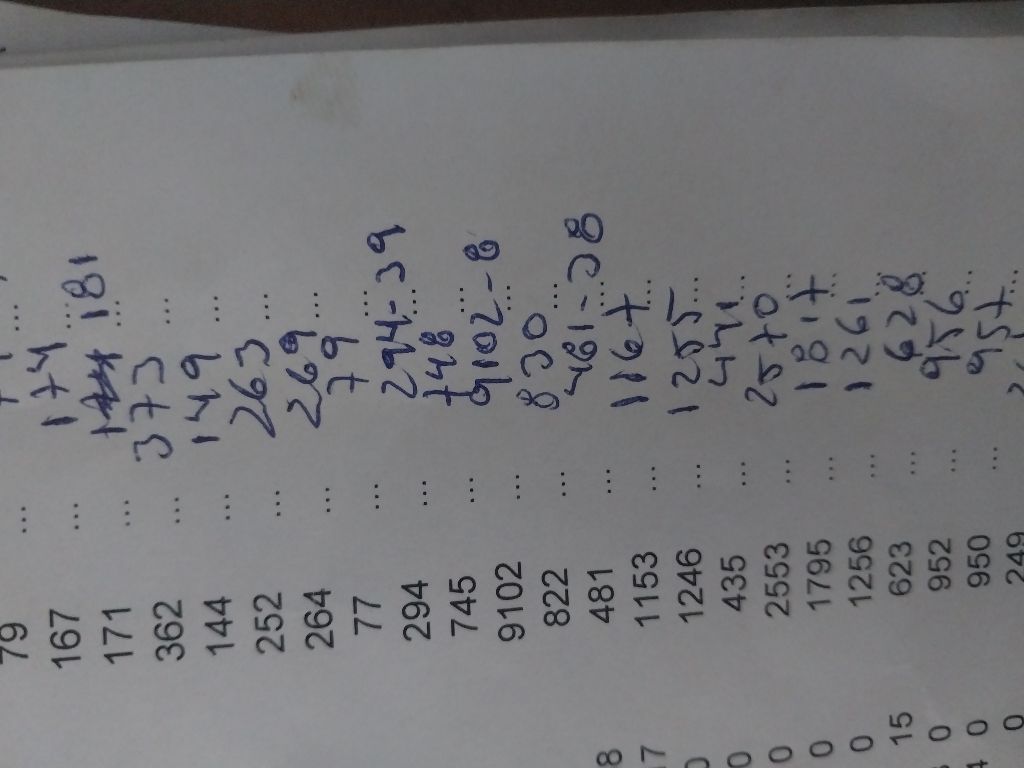 79 ... ...
167 ... 174 ...
171 ... 181 ...
362 ... 373 ...
144 ... 149 ...
252 ... 263 ...
264 ... 269 ...
77 ... 79 ...
294 ... 294-39 ...
745 ... 748 ...
9102 ... 9102-8 ...
822 ... 830 ...
8 481 ... 481-38 ...
17 1153 ... 1167 ...
0 1246 ... 1255 ...
0 435 ... 441 ...
0 2553 ... 2570 ...
0 1795 ... 1817 ...
0 1256 ... 1261 ...
15 623 ... 628 ...
0 952 ... 956 ...
0 950 ... 957 ...
0 249